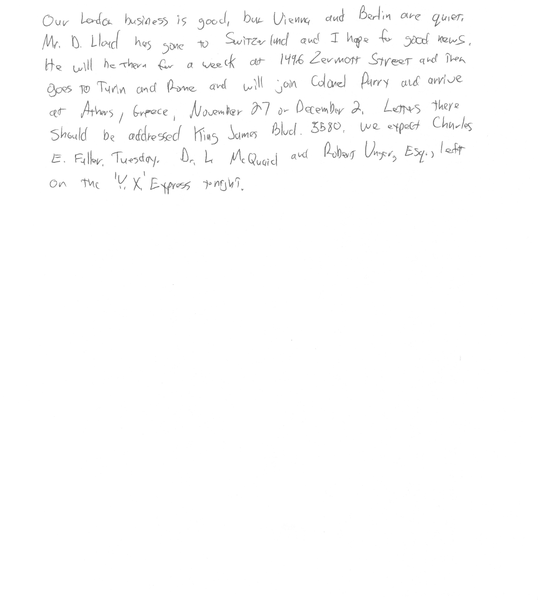 Our London business is good, but Vienna and Berlin are quiet.
Mr. D. Lloyd has gone to Switzerland and I hope for good news.
He will be there for a weeck at 1496 Zermott Street and then
goes to Turin and Rome and will join Colonel Parry and arrive
at Athens, Greece, November 27 or December 2. Letters there
should be addressed King James Blvd. 3580. we expect Charles
E. Fuller, Tuesday. Dr. L McQuaid and Robert Unger, Esq., left
on the 'Y. X' Express tonight.